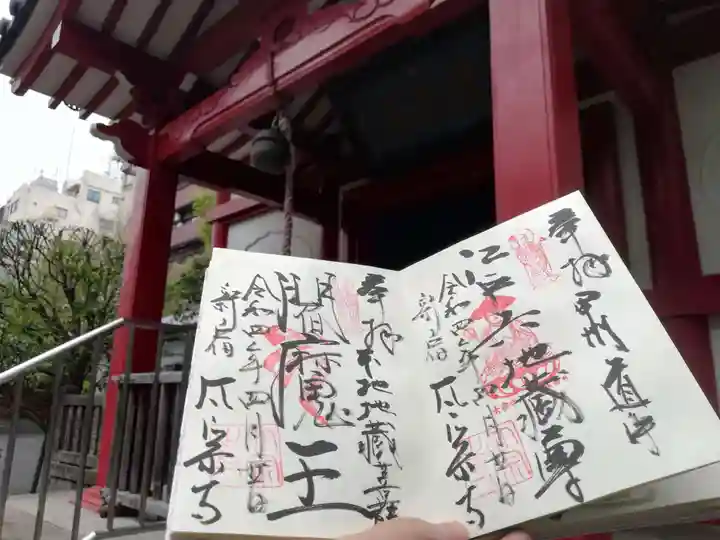 奉拝 甲州道中
江戸六地蔵尊
令和四年四月廿日
新宿 太宗寺
奉拝 本地地蔵菩薩
閻魔王
令和四年四月廿日
新宿 太宗寺